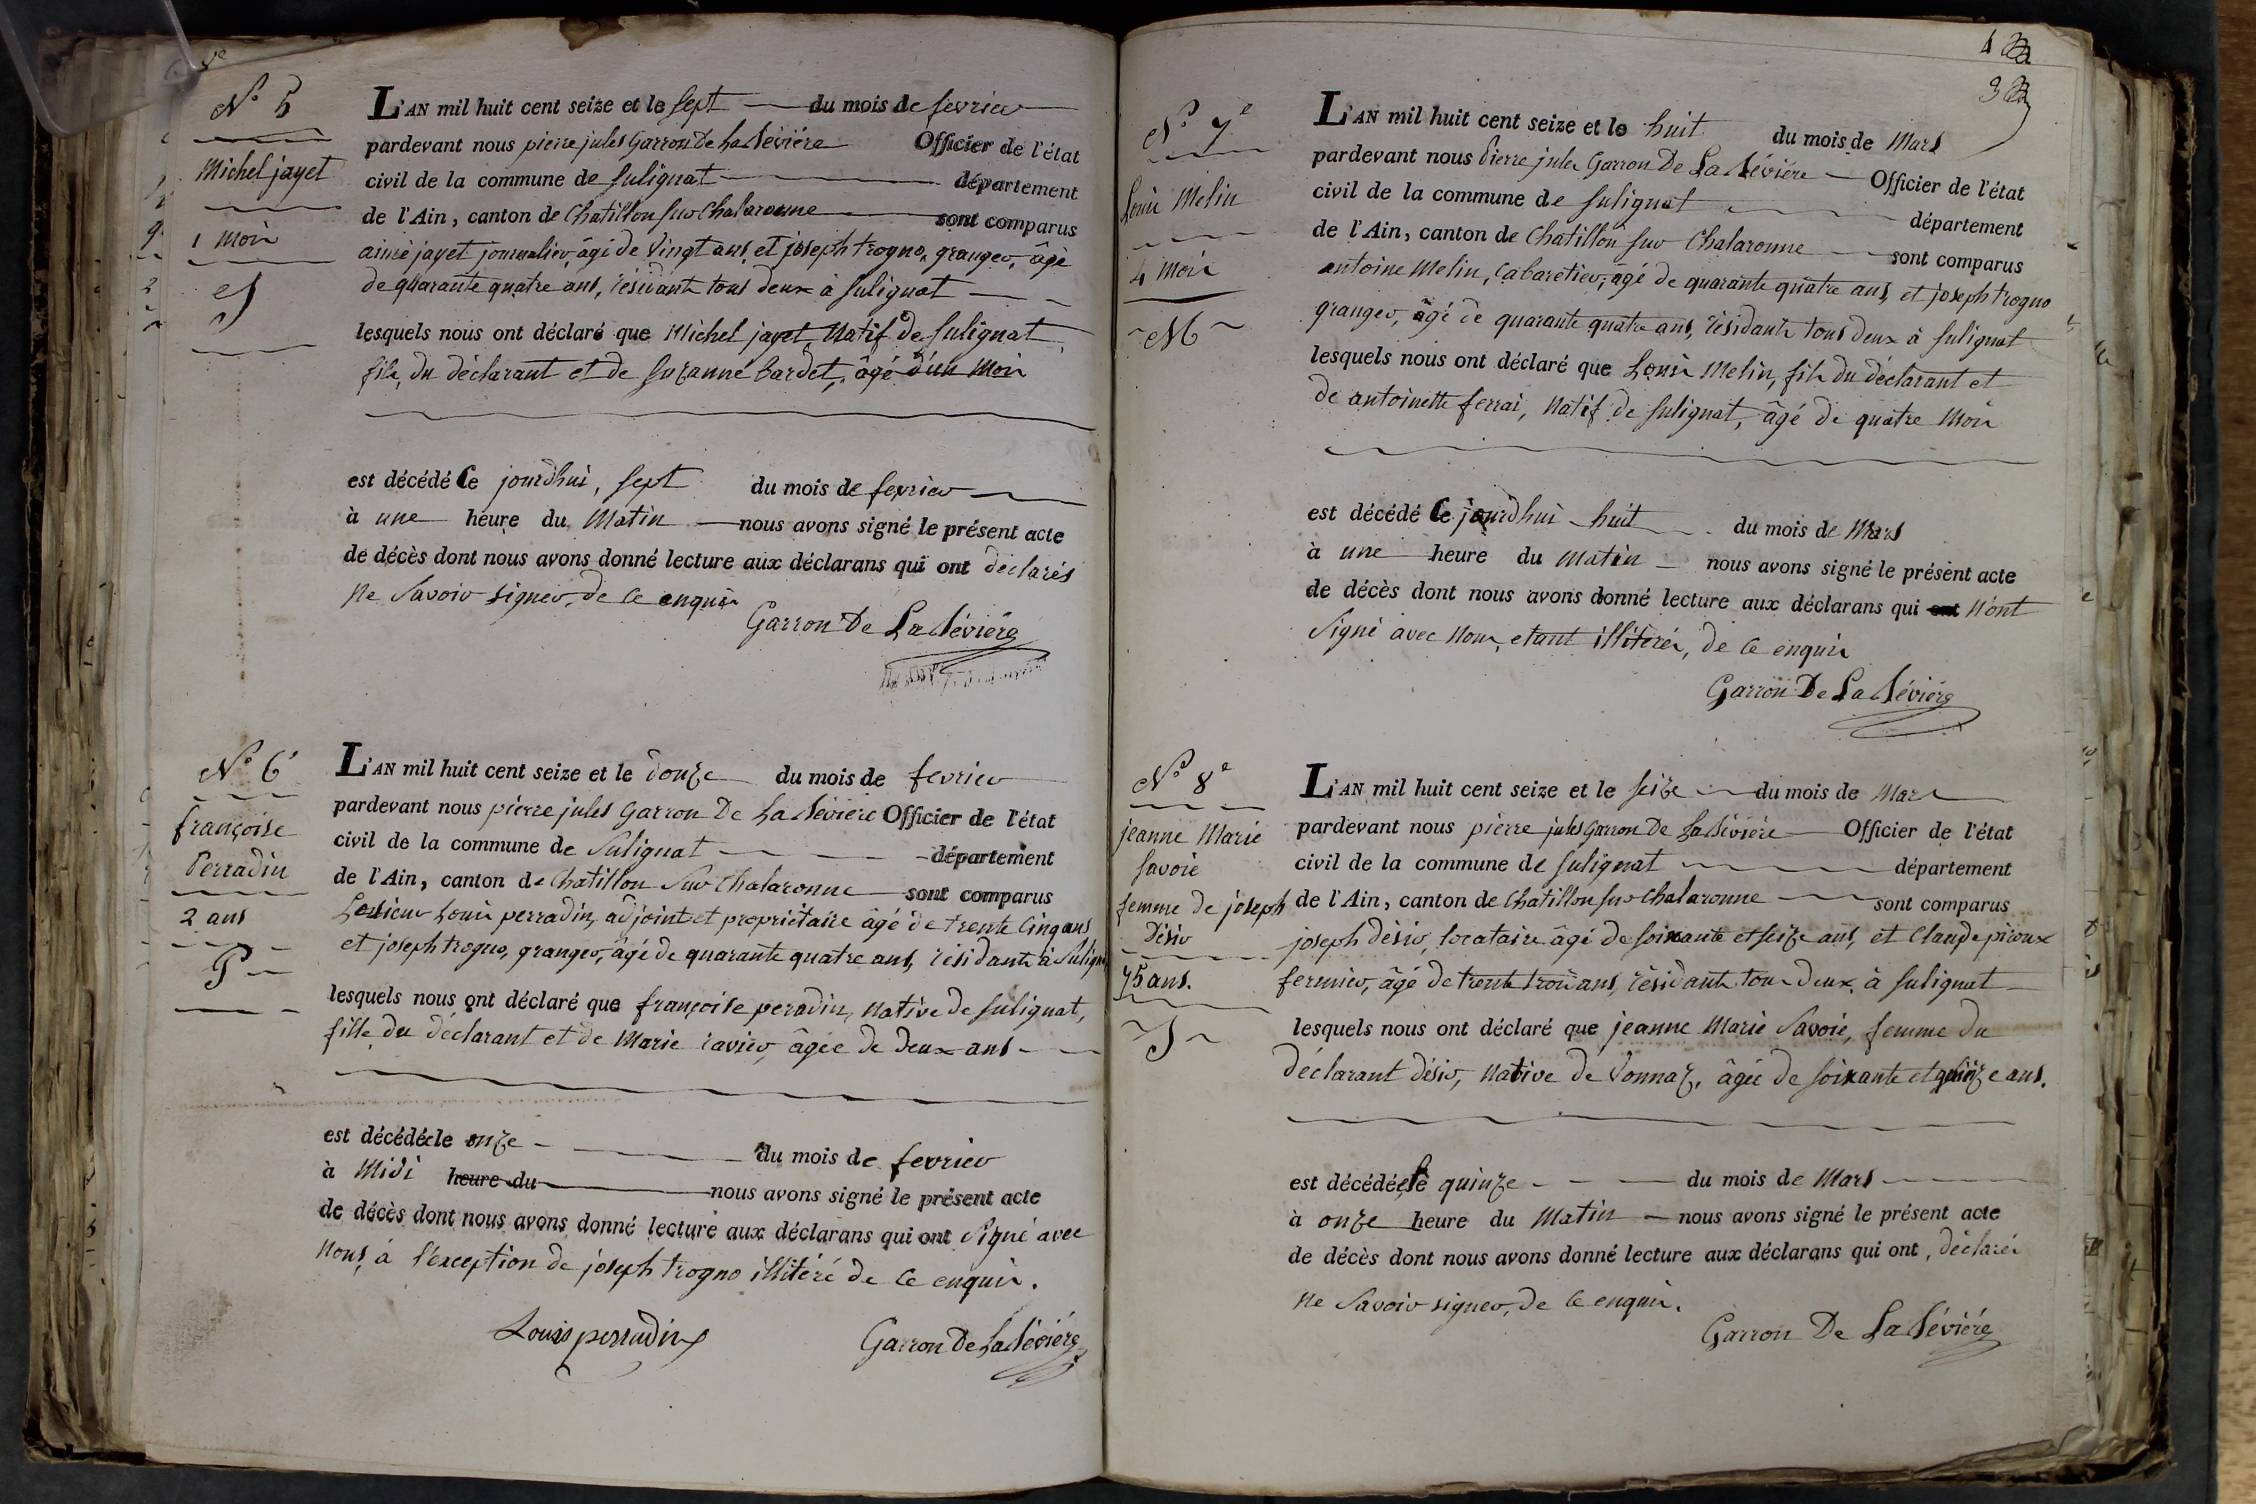 N° 5
Michel jayet
1 mois
J
L'AN mil huit cent seize et le sept du mois de fevrier
pardevant nous pierre jules Garron De La Séviére Officier de l'état
civil de la commune de Sulignat département
de l'Ain, canton de Chatillon sur Chalaronne sont comparus
aimé jayet journalier, âgé de vingt ans, et joseph trogno, granger, âgé
de quarante quatre ans, résidants tous deux à Sulignat
lesquels nous ont déclaré que Michel jayet, natif de Sulignat,
fils, du déclarant et de Suzanne bardet, âgé d'un mois
est décédé Ce jourdhui, sept du mois de fevrier
à une heure du Matin nous avons signé le présent acte
de décès dont nous avons donné lecture aux déclarans qui ont déclarés
ne Savoir signer, de ce enquis
Garron De La Séviére
N° 6e
françoise
Perradin
2 ans
P
L'AN mil huit cent seize et le douze du mois de fevrier
pardevant nous pierre jules Garron De La Séviére Officier de l'état
civil de la commune de Sulignat département
de l'Ain, canton de Chatillon Sur Chalaronne sont comparus
Lesieur Louis perradin, adjoint et propriétaire âgé de trente cinq ans
et joseph trogno, granger, âgé de quarante quatre ans, résidants à Sulign
lesquels nous ont déclaré que françoise peradin, native de Sulignat,
fille, du déclarant et de Marie ravier, âgée de deux ans
est décédée le onze du mois de fevrier
à Midi heure du nous avons signé le présent acte
de décès dont nous avons donné lecture aux déclarans qui ont Signé avec
Nous, à l'exception de joseph trogno illitéré de ce enquis.
Louis perradin
Garron De La Séviére
4
3
N° 7e
Louis Melin
4 Mois
M
L'AN mil huit cent seize et le huit du mois de Mars
pardevant nous Pierre jules Garron De La Séviére Officier de l'état
civil de la commune de Sulignat département
de l'Ain, canton de Chatillon sur Chalaronne sont comparus
antoine Melin, Cabaretier, âgé de quarante quatre ans, et joseph trogno
granger, âgé de quarante quatre ans, résidants tous deux à Sulignat
lesquels nous ont déclaré que Louis Melin, fils du déclarant et
de antoinette ferrai, Natif de Sulignat, âgé de quatre Mois
est décédé Ce jourdhui huit du mois de Mars
à une heure du Matin nous avons signé le présent acte
de décès dont nous avons donné lecture aux déclarans qui ont N'ont
Signé avec Nous, etant illiterés, de ce enquis
Garron De La Séviére
N° 8e
jeanne Marie
Savoie
femme de joseph
Désir
75 ans.
S
L'AN mil huit cent seize et le seize du mois de Mars
pardevant nous pierre jules Garron De La Séviére Officier de l'état
civil de la commune de Sulignat département
de l'Ain, canton de Chatillon sur Chalaronne sont comparus
joseph désir, locataire âgé de soixante et seize ans, et Claude piroux
fermier, âgé de trente trois ans, résidants tous deux, à Sulignat
lesquels nous ont déclaré que jeanne Marie Savoie, femme du
déclarant désir, Native de Vonnaz, âgée de soixante et quinze ans.
est décédée le quinze du mois de Mars
à onze heure du Matin nous avons signé le présent acte
de décès dont nous avons donné lecture aux déclarans qui ont, déclarés
Ne Savoir signer, de ce enquis.
Garron De La Séviére